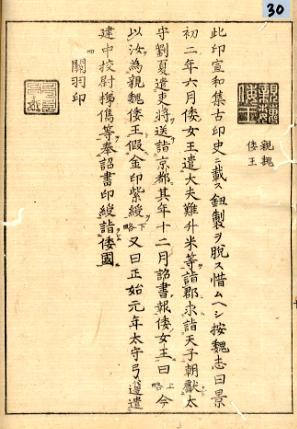 30
親魏倭王
親魏
倭王
此印宣和集古印史ニ載ス鈕製ヲ脱ス惜ムヘシ按魏志曰景
初二年六月倭女王遣大夫難升米等詣郡求詣天子朝獻太
守劉夏遣吏將送詣京都其年十二月詔書報倭女王曰上略今
以汝為親魏倭王假金印紫綬下略又曰正始元年太守弓遵遣
建中校尉梯儁等奉詔書印綬詣倭國
關羽印